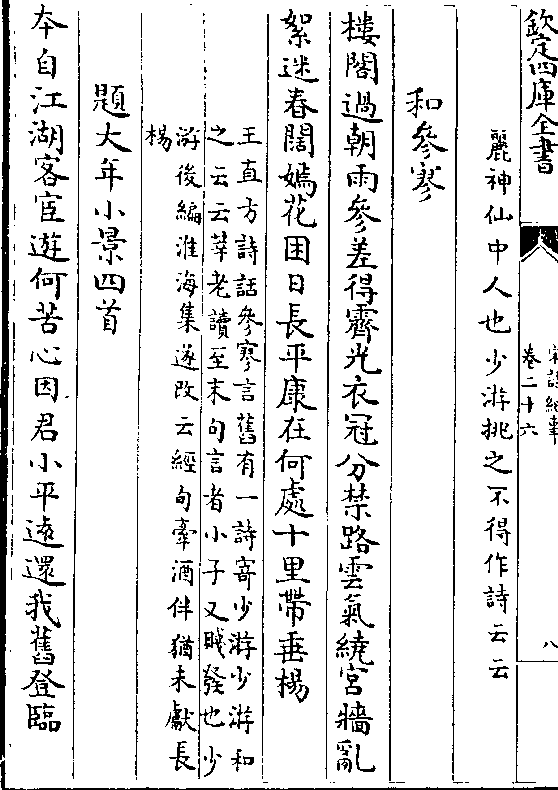 欽定四庫全書
宋詩紀事
卷二十六
八
麗神仙中人也少游挑之不得作詩云云
和參寥
樓閣過朝雨參差得霽光衣冠分禁路雲氣繞宮牆亂
絮迷春闊嫣花困日長平康在何處十里帶垂楊
王直方詩話參寥言舊有一詩寄少游少游和
之云云莘老讀至末句言者小子又賤發也少
游後編淮海集遂改云經旬牽酒伴猶未獻長
楊
題大年小景四首
本自江湖客宦遊何苦心因君小平遠還我舊登臨